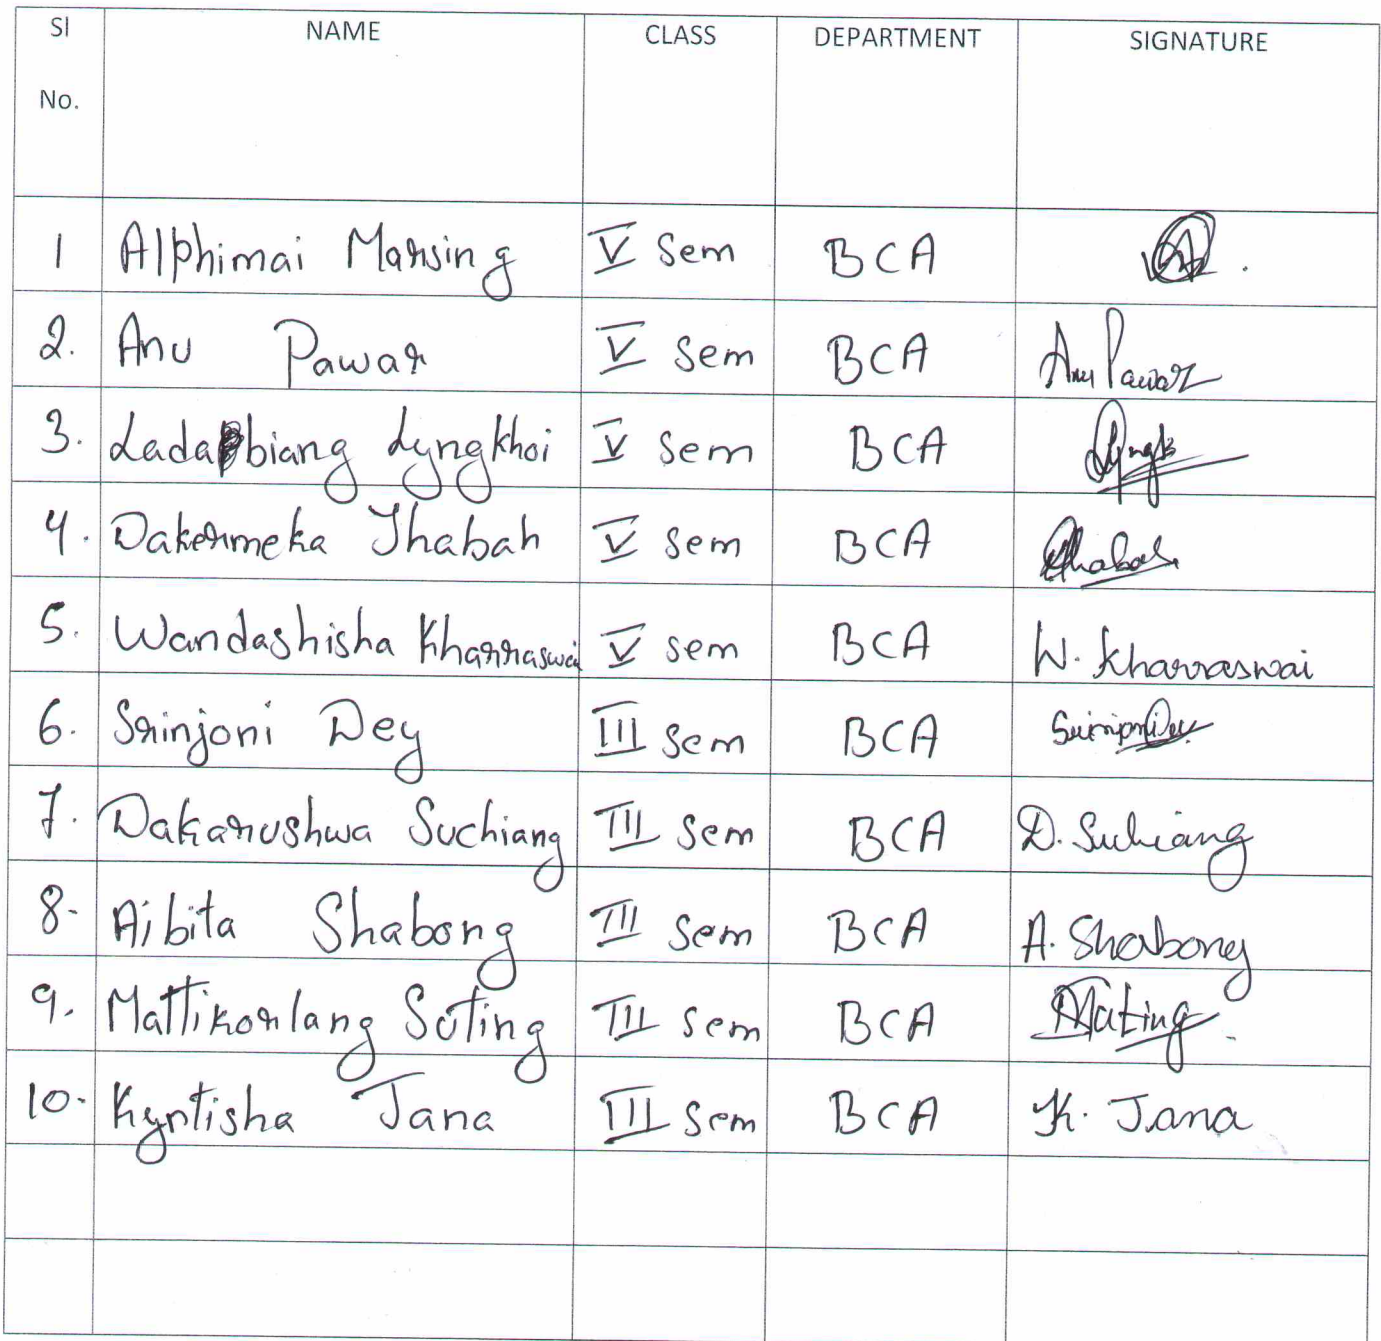 Sl No. NAME CLASS DEPARTMENT SIGNATURE
1 Alphimai Marsing V Sem BCA
2. Anu Pawar V Sem BCA Anu Pawar
3. Ladabiang Lyngkhoi V Sem BCA Lyngk
4. Dakermeka Thabah V Sem BCA Thabah
5. Wandashisha Kharraswai V Sem BCA W. Kharraswai
6. Srinjoni Dey III Sem BCA Srinjoni Dey
7. Dakarushwa Suchiang III Sem BCA D. Suchiang
8. Aibita Shabong III Sem BCA A. Shabong
9. Mattikorlang Suting III Sem BCA
10. Kyntisha Jana III Sem BCA K. Jana